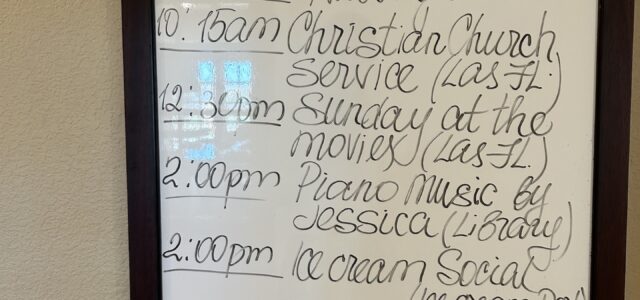 10:15am Christian Church
Service (Las FL.)
12:30pm Sunday at the
movies (Las FL.)
2:00pm Piano Music by
Jessica (Library)
2:00pm Ice cream Social